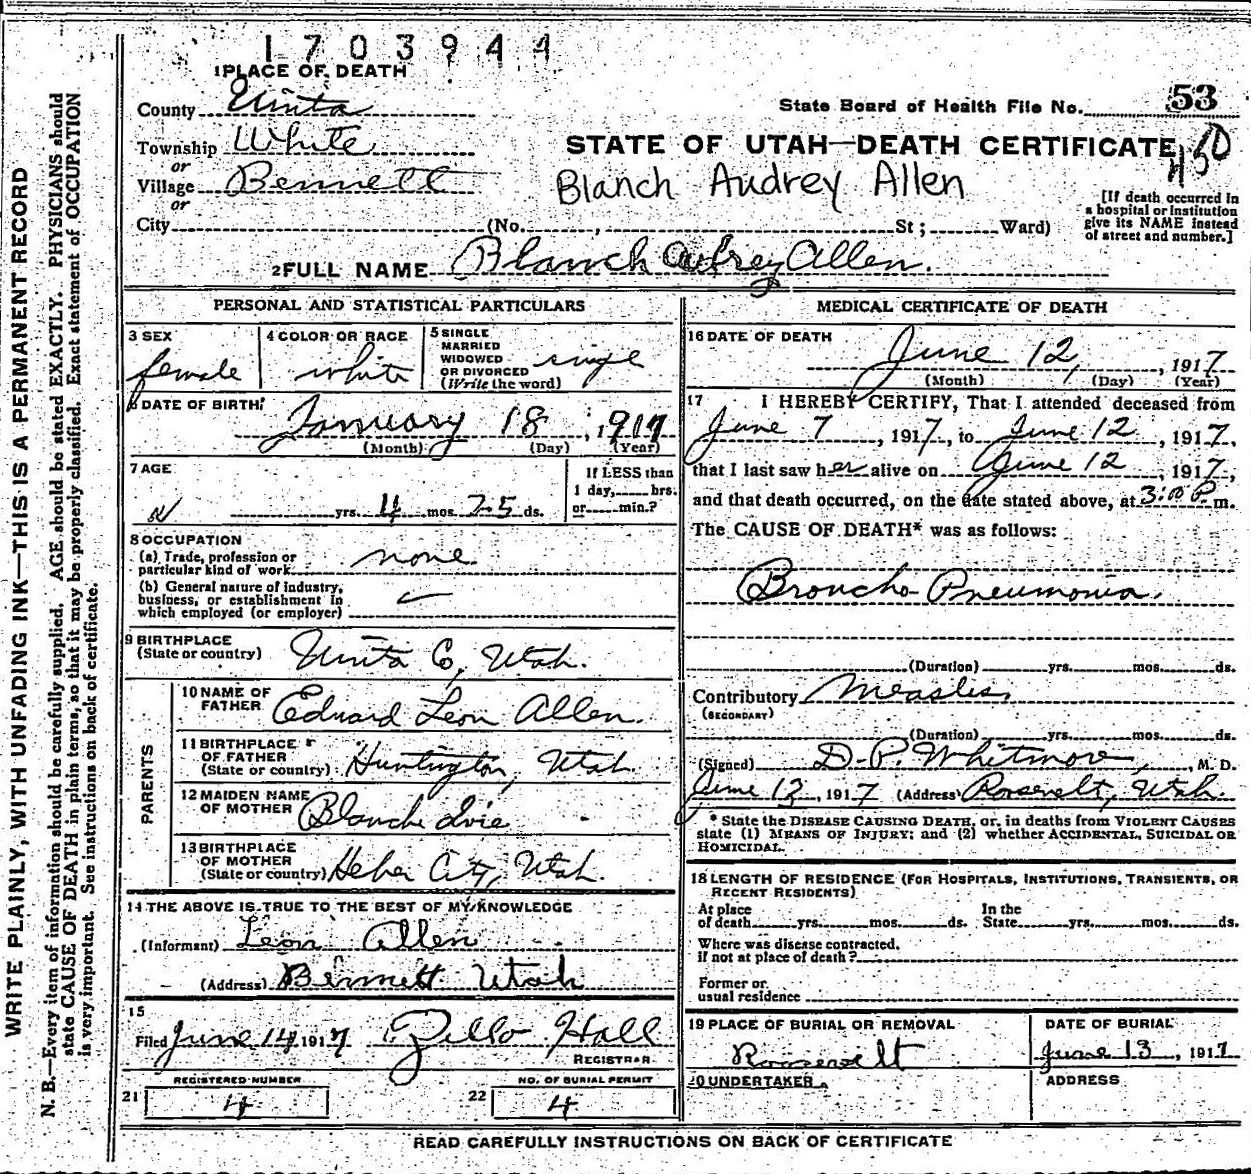 1703944
1 PLACE OF DEATH
County Uinta
State Board of Health File No. 53
Township White
STATE OF UTAH—DEATH CERTIFICATE
or
Village Bennett
Blanch Audrey Allen
or
[If death occurred in a hospital or institution give its NAME instead of street and number.]
City (No. , St ; Ward)
2 FULL NAME Blanch Audrey Allen.
PERSONAL AND STATISTICAL PARTICULARS
3 SEX female
4 COLOR OR RACE white
5 SINGLE
MARRIED
WIDOWED
OR DIVORCED
(Write the word)
single
6 DATE OF BIRTH
January 18, 1917
(Month) (Day) (Year)
7 AGE
yrs. 4 mos. 25 ds.
If LESS than
1 day, hrs.
or min.?
8 OCCUPATION
(a) Trade, profession or
particular kind of work none
(b) General nature of industry,
business, or establishment in
which employed (or employer)
9 BIRTHPLACE
(State or country) Uinta Co, Utah.
PARENTS
10 NAME OF
FATHER Edward Leon Allen.
11 BIRTHPLACE
OF FATHER
(State or country) Huntington, Utah
12 MAIDEN NAME
OF MOTHER Blanche Ivie
13 BIRTHPLACE
OF MOTHER
(State or country) Heber City, Utah.
14 THE ABOVE IS TRUE TO THE BEST OF MY KNOWLEDGE
(Informant) Leon Allen
(Address) Bennett Utah
15
Filed June 14 1917 Zello Hall
REGISTRAR
REGISTERED NUMBER
21 4
NO. OF BURIAL PERMIT
22 4
MEDICAL CERTIFICATE OF DEATH
16 DATE OF DEATH
June 12, 1917
(Month) (Day) (Year)
17 I HEREBY CERTIFY, That I attended deceased from
June 7, 1917, to June 12, 1917,
that I last saw her alive on June 12, 1917,
and that death occurred, on the date stated above, at 3:00 P. m.
The CAUSE OF DEATH* was as follows:
Broncho Pneumonia.
(Duration) yrs. mos. ds.
Contributory Measles
(SECONDARY)
(Duration) yrs. mos. ds.
(Signed) D. P. Whitmore, M. D.
June 12, 1917 (Address) Roosevelt, Utah.
* State the DISEASE CAUSING DEATH, or, in deaths from VIOLENT CAUSES
state (1) MEANS OF INJURY; and (2) whether ACCIDENTAL, SUICIDAL OR
HOMICIDAL.
18 LENGTH OF RESIDENCE (FOR HOSPITALS, INSTITUTIONS, TRANSIENTS, OR
RECENT RESIDENTS)
At place
of death yrs. mos. ds.
In the
State yrs. mos. ds.
Where was disease contracted,
if not at place of death?
Former or
usual residence
19 PLACE OF BURIAL OR REMOVAL
Roosevelt
DATE OF BURIAL
June 13, 1917
20 UNDERTAKER
ADDRESS
READ CAREFULLY INSTRUCTIONS ON BACK OF CERTIFICATE
WRITE PLAINLY, WITH UNFADING INK—THIS IS A PERMANENT RECORD
N. B.—Every item of information should be carefully supplied. AGE should be stated EXACTLY. PHYSICIANS should
state CAUSE OF DEATH in plain terms, so that it may be properly classified. Exact statement of OCCUPATION
is very important. See instructions on back of certificate.